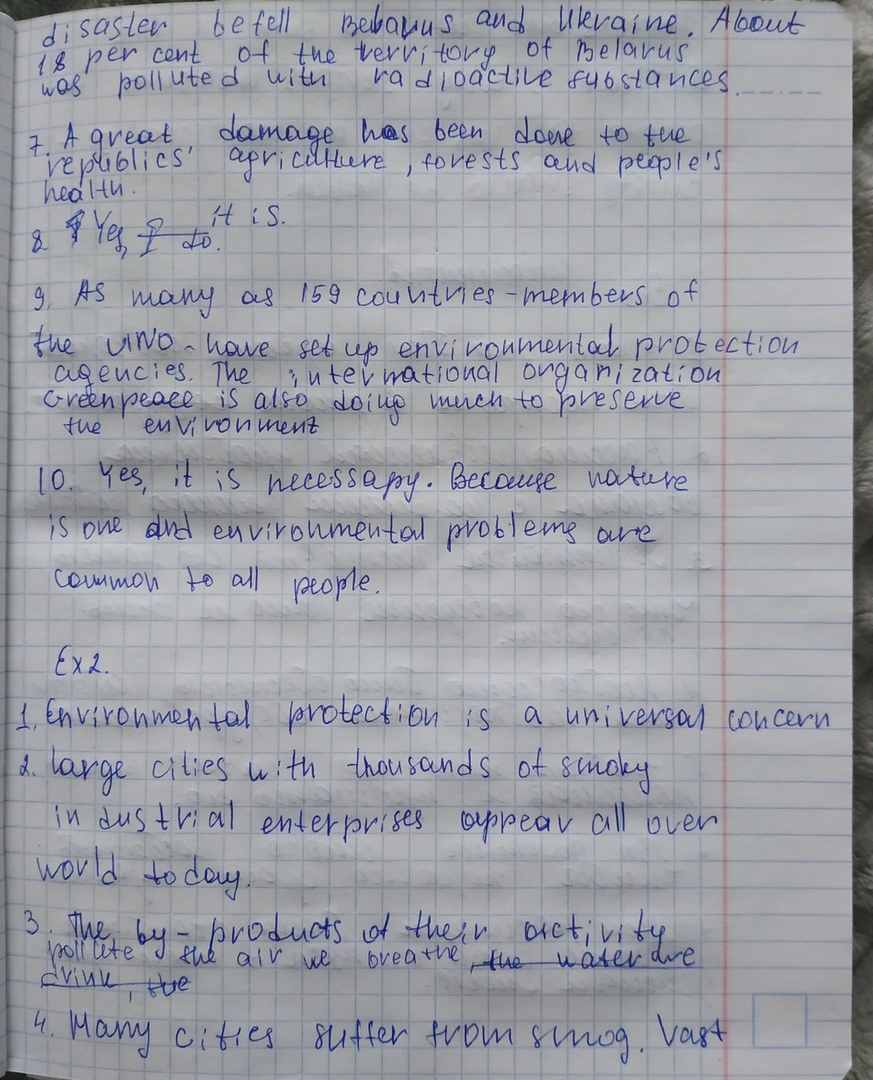 disaster befell Belarus and Ukraine. About
18 per cent of the territory of Belarus
was polluted with radioactive substances
7. A great damage has been done to the
republics' agriculture, forests and people's
health.
8. Yes, I do. it is.
9. As many as 159 countries-members of
the UNO - have set up environmental protection
agencies. The international organization
Greenpeace is also doing much to preserve
the environment
10. Yes, it is necessapy. Because nature
is one and environmental problems are
common to all people.
Ex2.
1. Environmental protection is a universal concern
2. large cities with thousands of smoky
industrial enterprises appear all over
world today.
3. The by-products of their activity
pollute the air we breathe, the water we
drink, the
4. Many cities suffer from smog. Vast